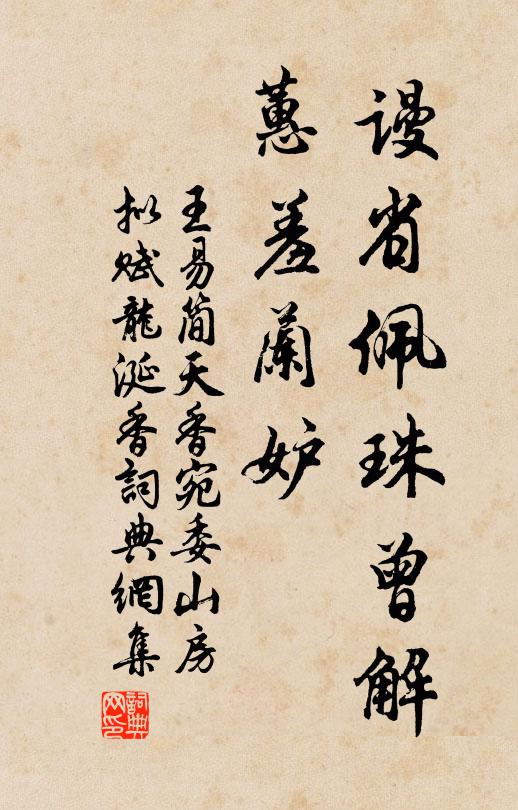 謾省佩珠曾解
蕙羞蘭妒
王易簡天香宛委山房
拟赋龍涎香詞典網集
詞典
网印